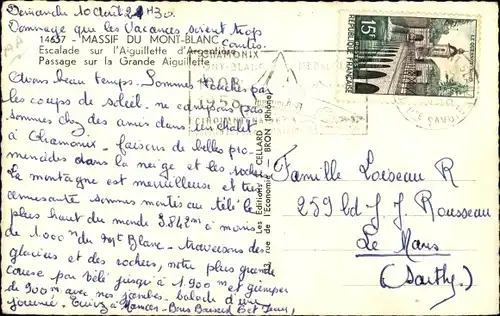 Dimanche 10 Août 21H30.
Dommage que les Vacances soient trop courtes.
14637 - "MASSIF DU MONT-BLANC"
Escalade sur l'Aiguillette d'Argentière
Passage sur la Grande Aiguillette
Avons beau temps. Sommes touchés par
les coups de soleil. ne campons pas
sommes chez des amis dans un chalet
à Chamonix - faisons de belles pro-
menades dans la neige et les rochers
La montagne est merveilleuse et très
amusante sommes montés au télé le
plus haut du monde 3.842m à moins
de 1.000m du Mt Blanc - traversons des
glaciers et des rochers, notre plus grande
course par télé jusqu'à 1.900m et grimper
de 900m avec nos jambes balade d'une
journée.
Bons Baisers
CHAMONIX
MONT-BLANC
15F
REPUBLIQUE FRANÇAISE
LE QUESNOY
Les Editions CELLARD
32, rue de l'Economie - BRON (Rhône)
Famille Loiseau R
259 bd J. J. Rousseau
Le Mans
(Sarthe)